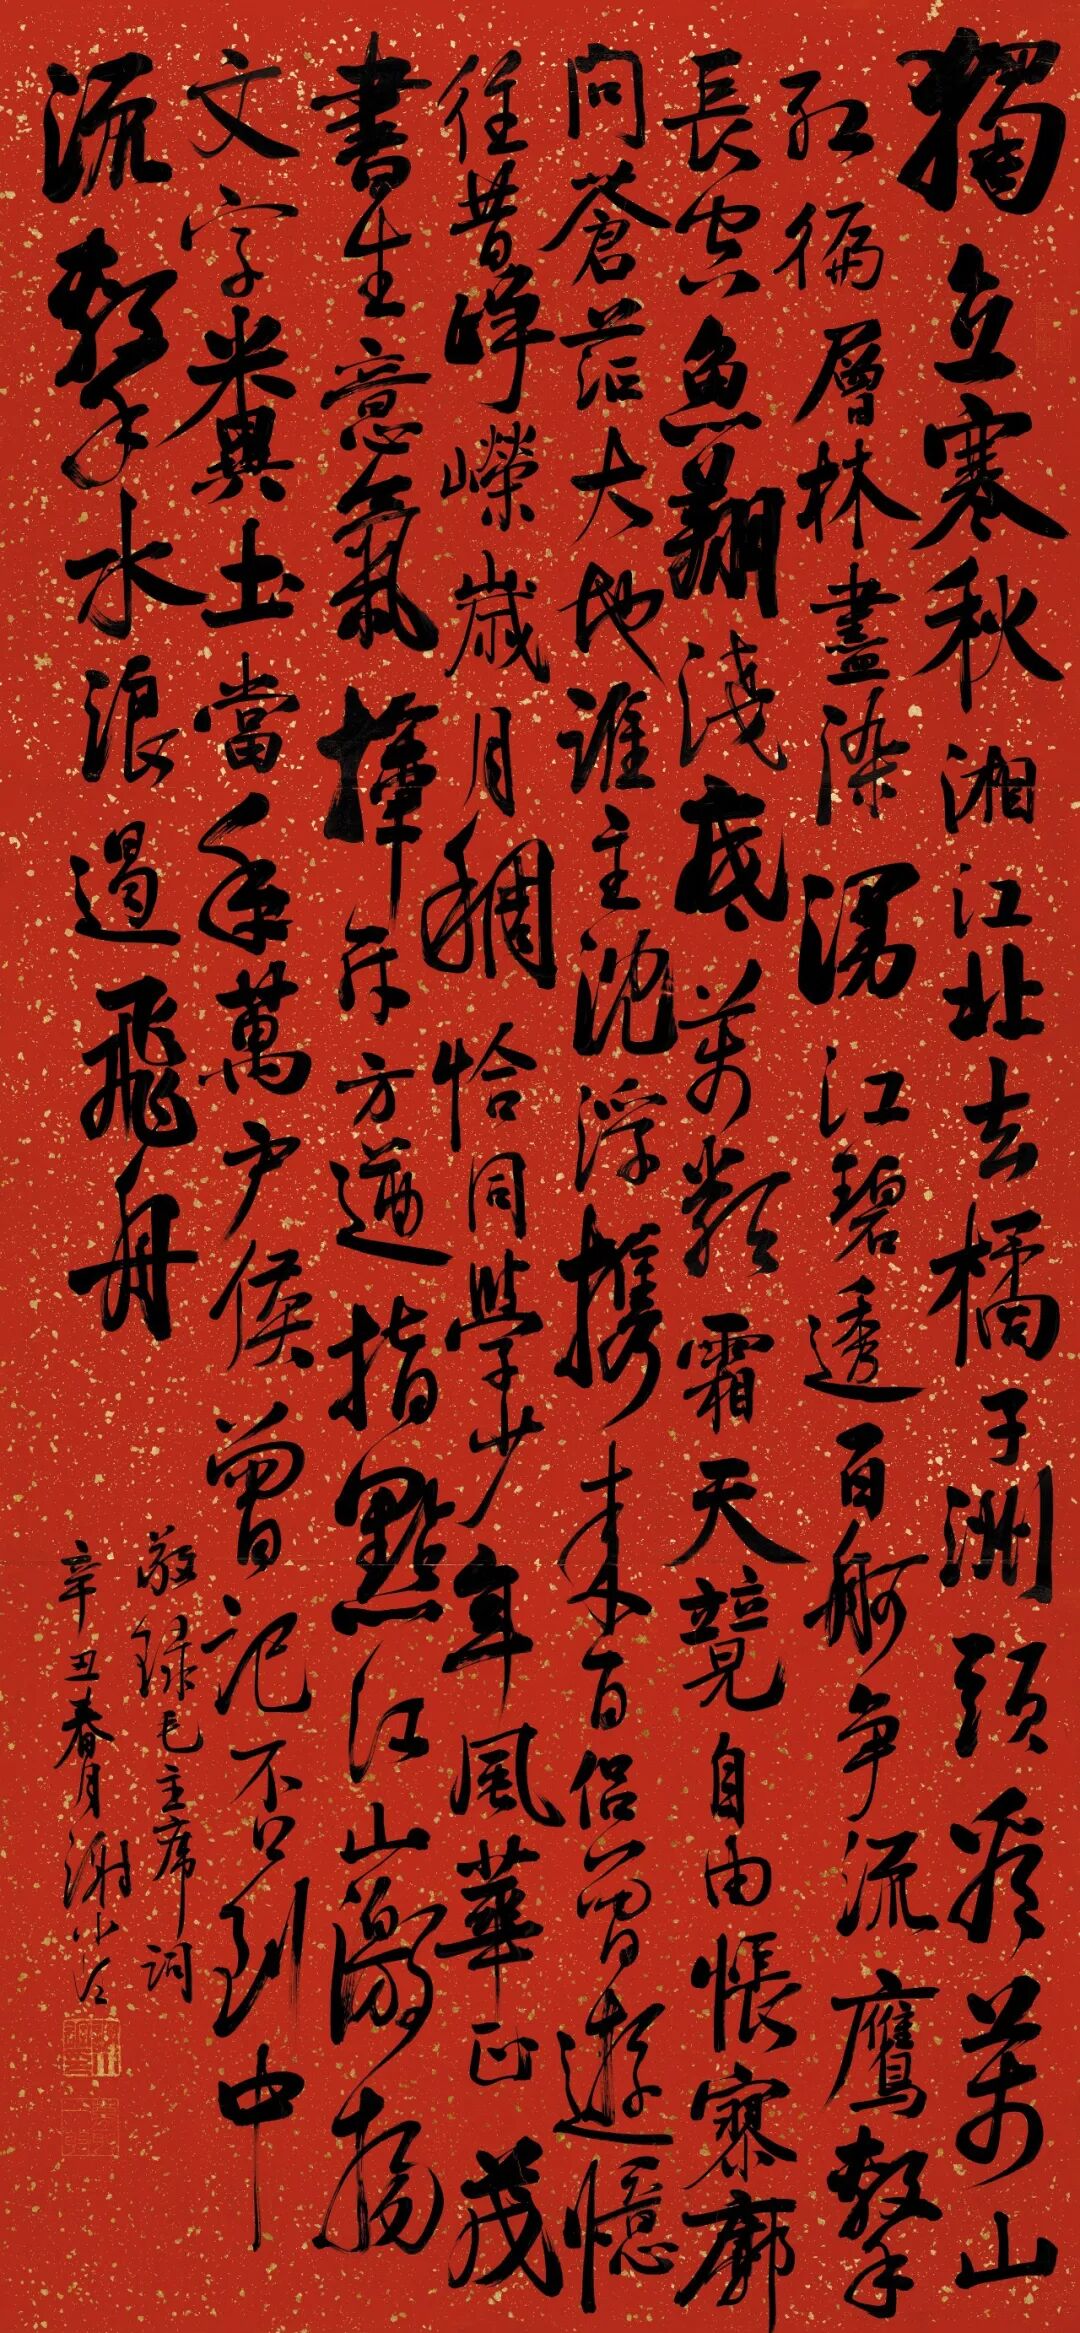 獨立寒秋湘江北去橘子洲頭看萬山
紅徧層林盡染漫江碧透百舸爭流鷹擊
長空魚翔淺底萬類霜天競自由悵寥廓
問蒼茫大地誰主沈浮攜來百侶曾遊憶
往昔崢嶸歲月稠恰同學少年風華正茂
書生意氣揮斥方遒指點江山激揚
文字糞土當年萬户侯曾記否到中
流擊水浪遏飛舟
敬錄毛主席詞
辛丑春月謝小